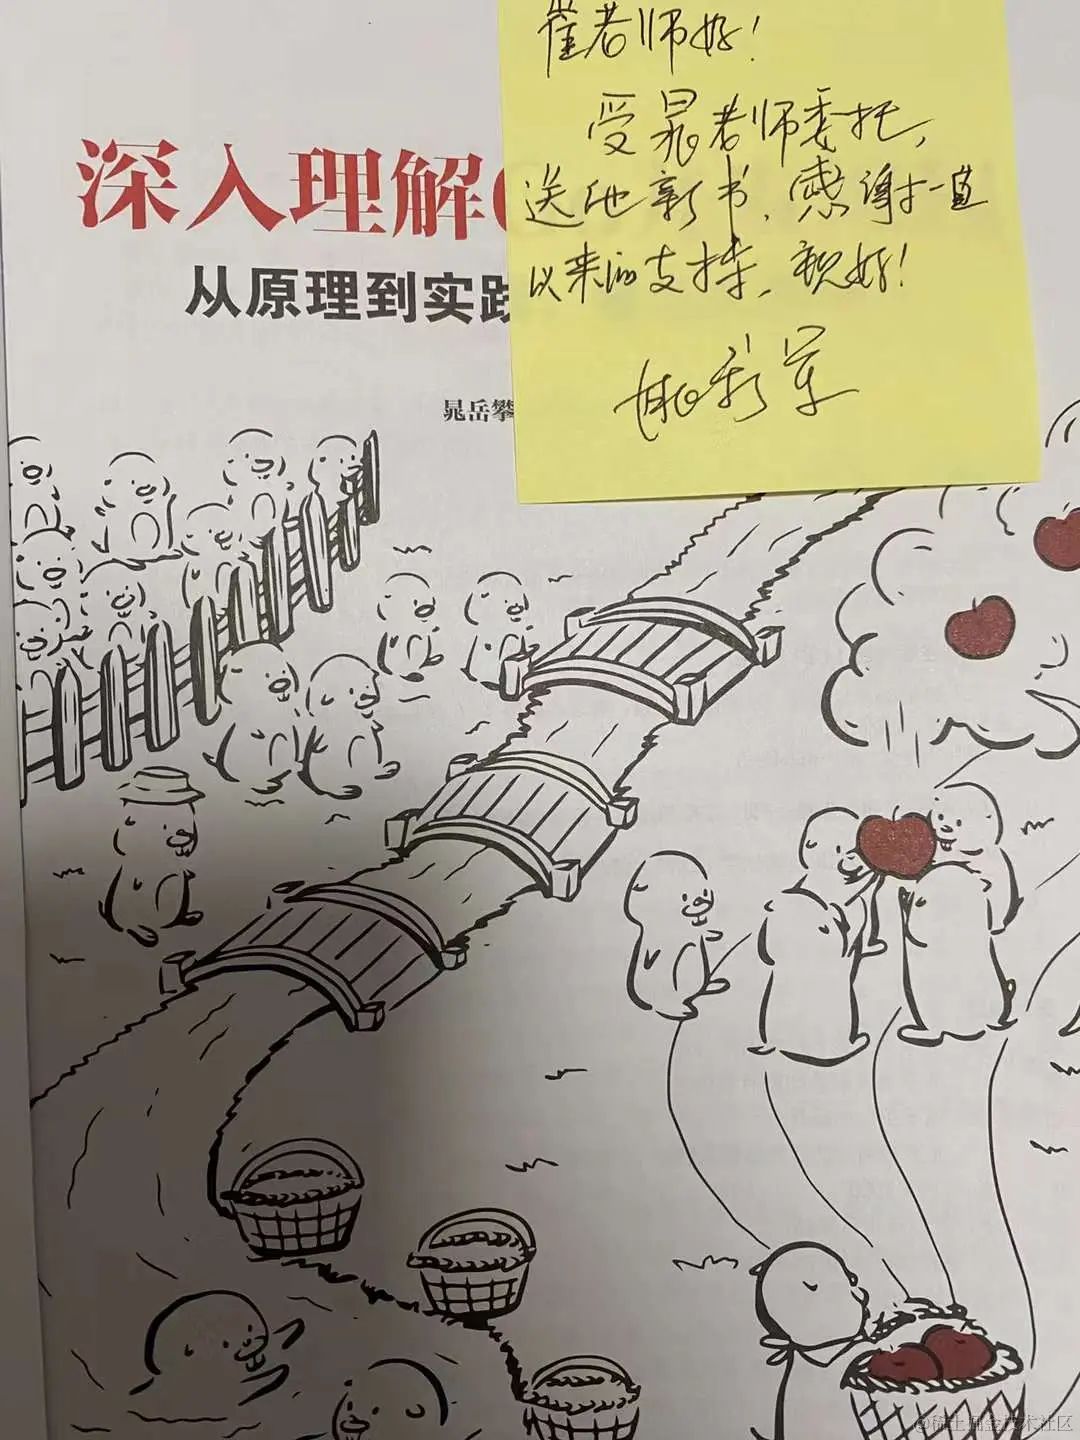 崔老师好！
受晁老师委托，
送他新书，感谢一直
以来的支持，祝好！
姚新军
深入理解
从原理到实践
晁岳攀
@稀土掘金技术社区